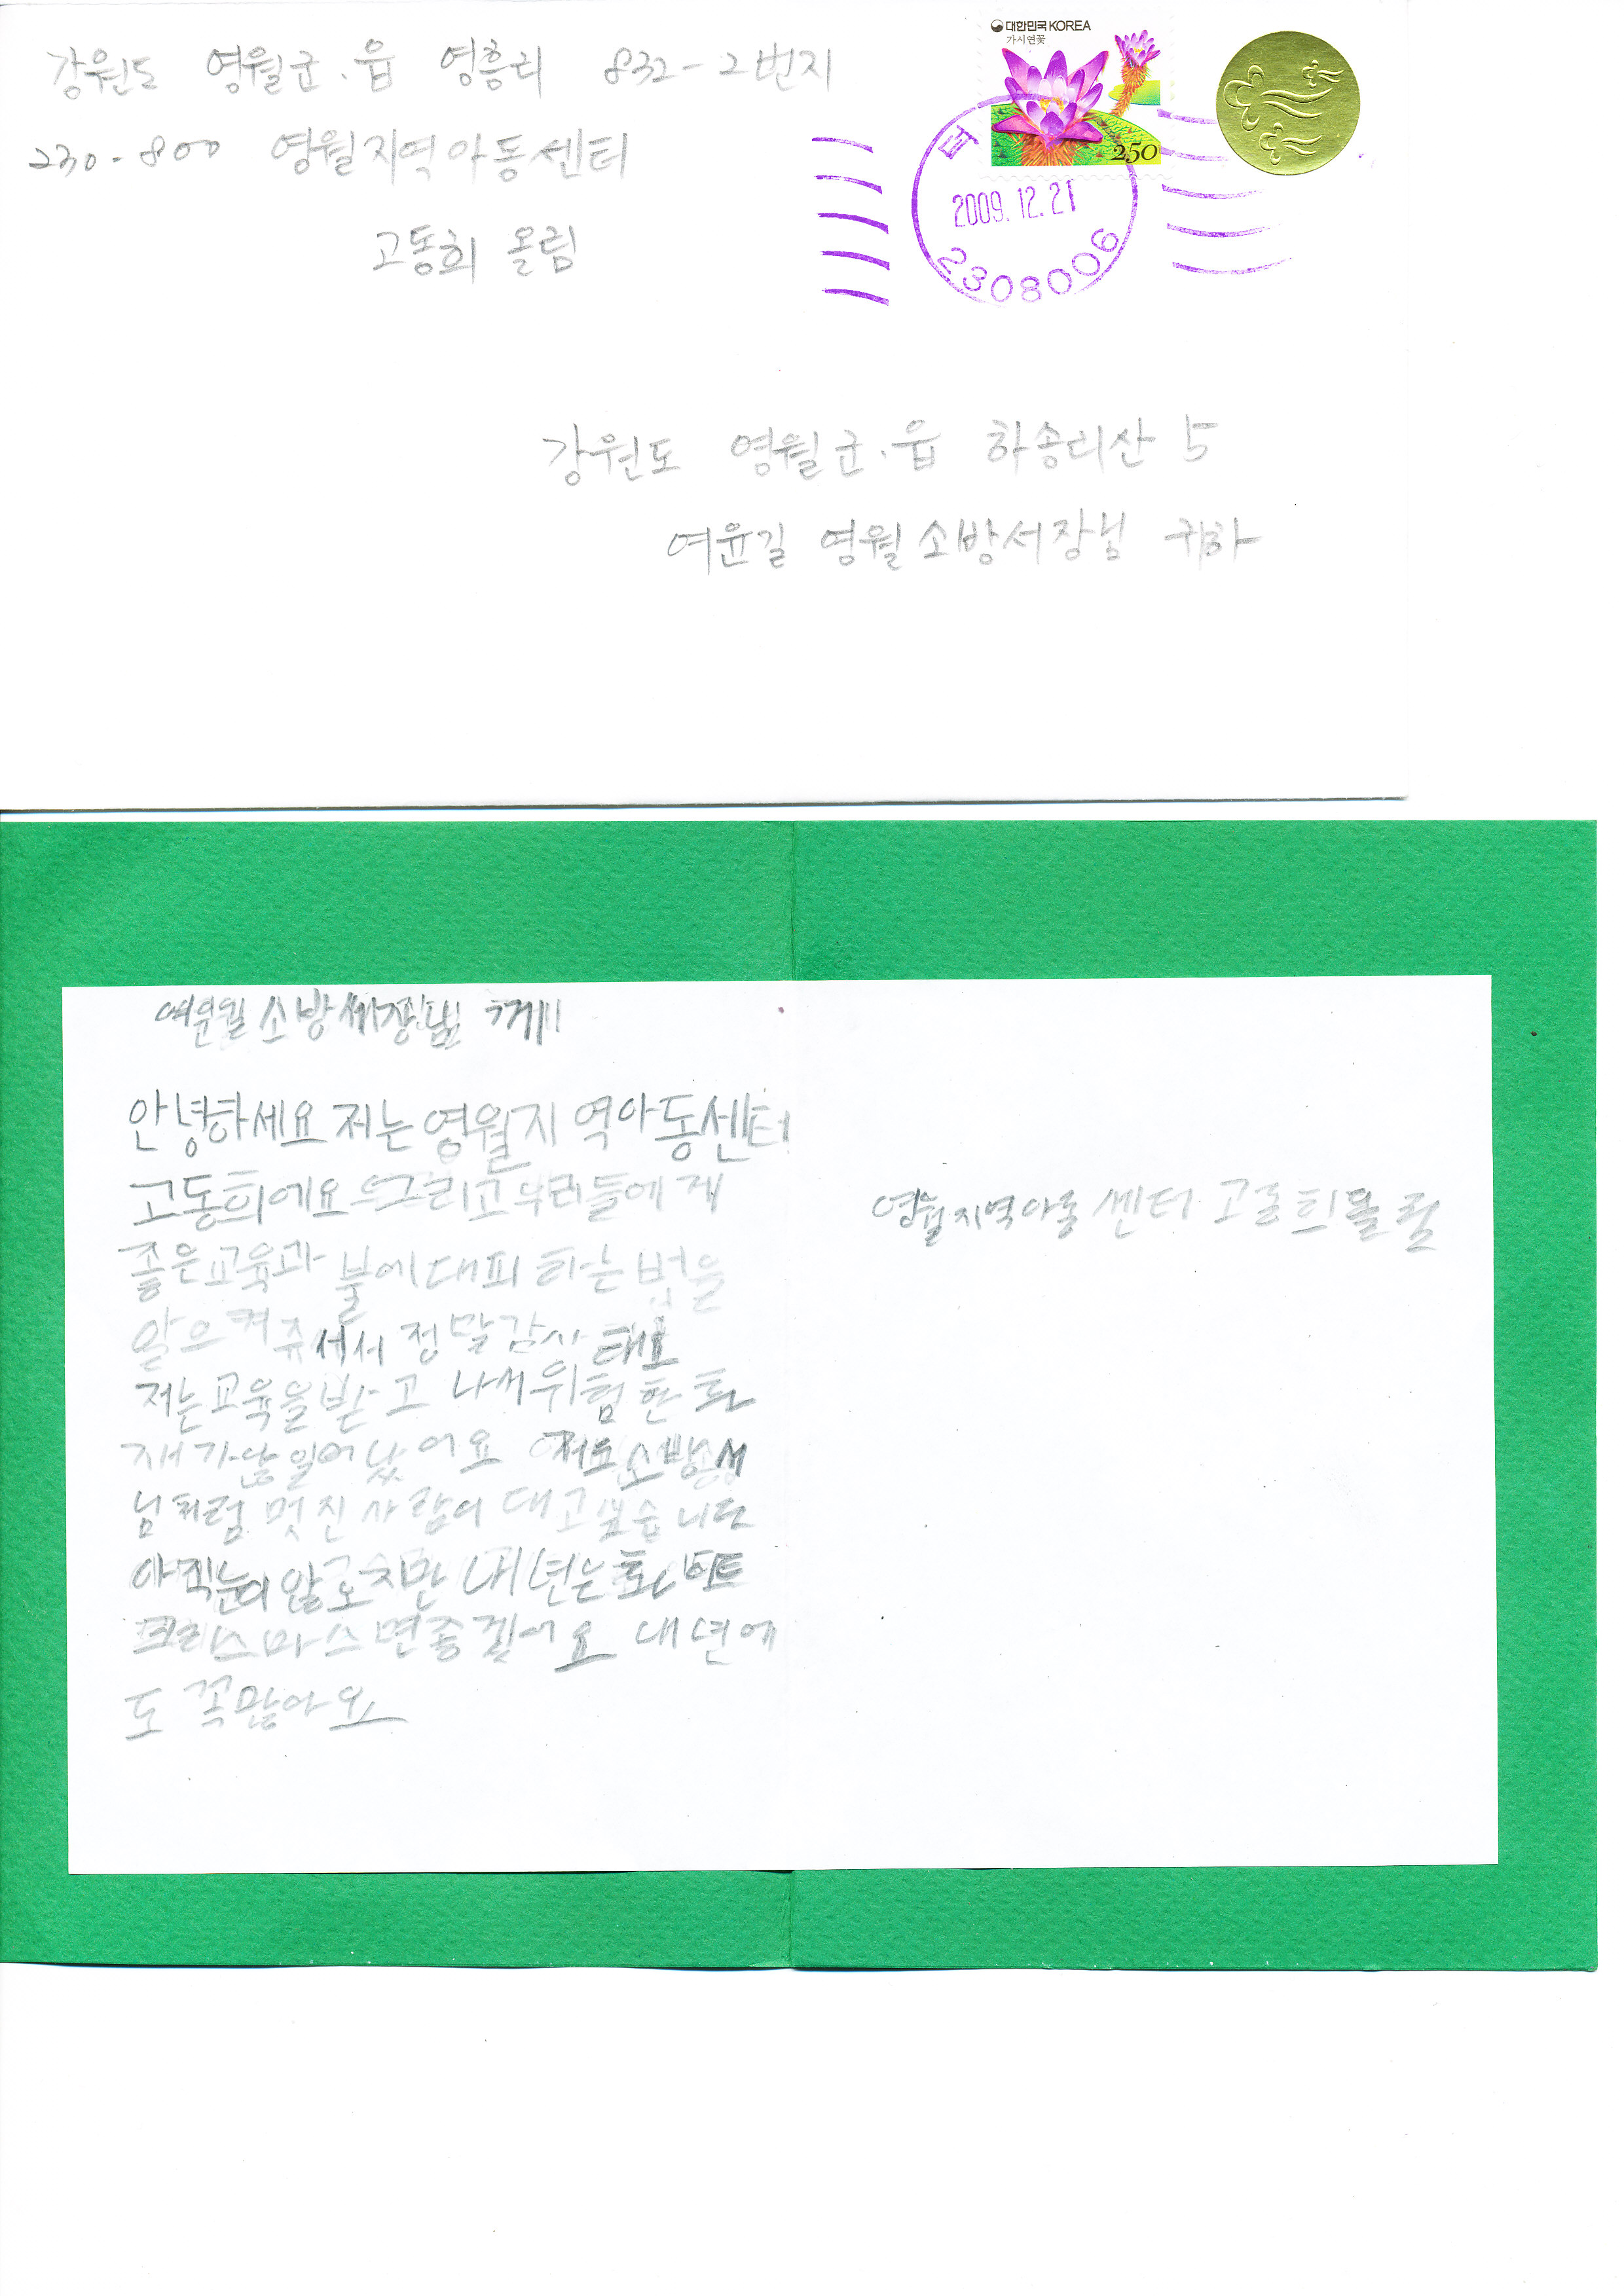 강원도 영월군.읍 영흥리 832-2번지
230-800 영월지역아동센터
고동희 올림
대한민국 KOREA
가시연꽃
250
2009.12.21
2308006
강원도 영월군.읍 하송리산 5
여윤길 영월소방서장님 귀하
소방서장님 께
안녕하세요 저는 영월지역아동센터
고동희에요 그리고 우리들에게
좋은교육과 불에대피 하는 법을
알으켜주세서 정말감사해요
저는교육을받고 나서위험한화
재가않일어났어요 저도소방서
님처럼 멋진사람이 대고싶습니다
아직눈이않오지만 내년은화이트
크리스마스면좋겠어요 내년에
도 꼭많아요
영월지역아동센터 고동희올림